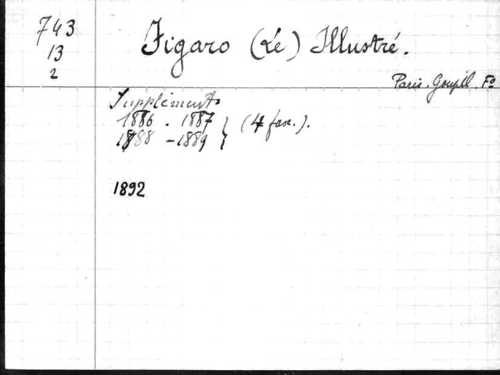 743
13
2
Figaro (Le) Illustré.
Paris. Goupil. Fº
Suppléments
1886 - 1887 } (4 fasc.).
1888 - 1889 }
1892